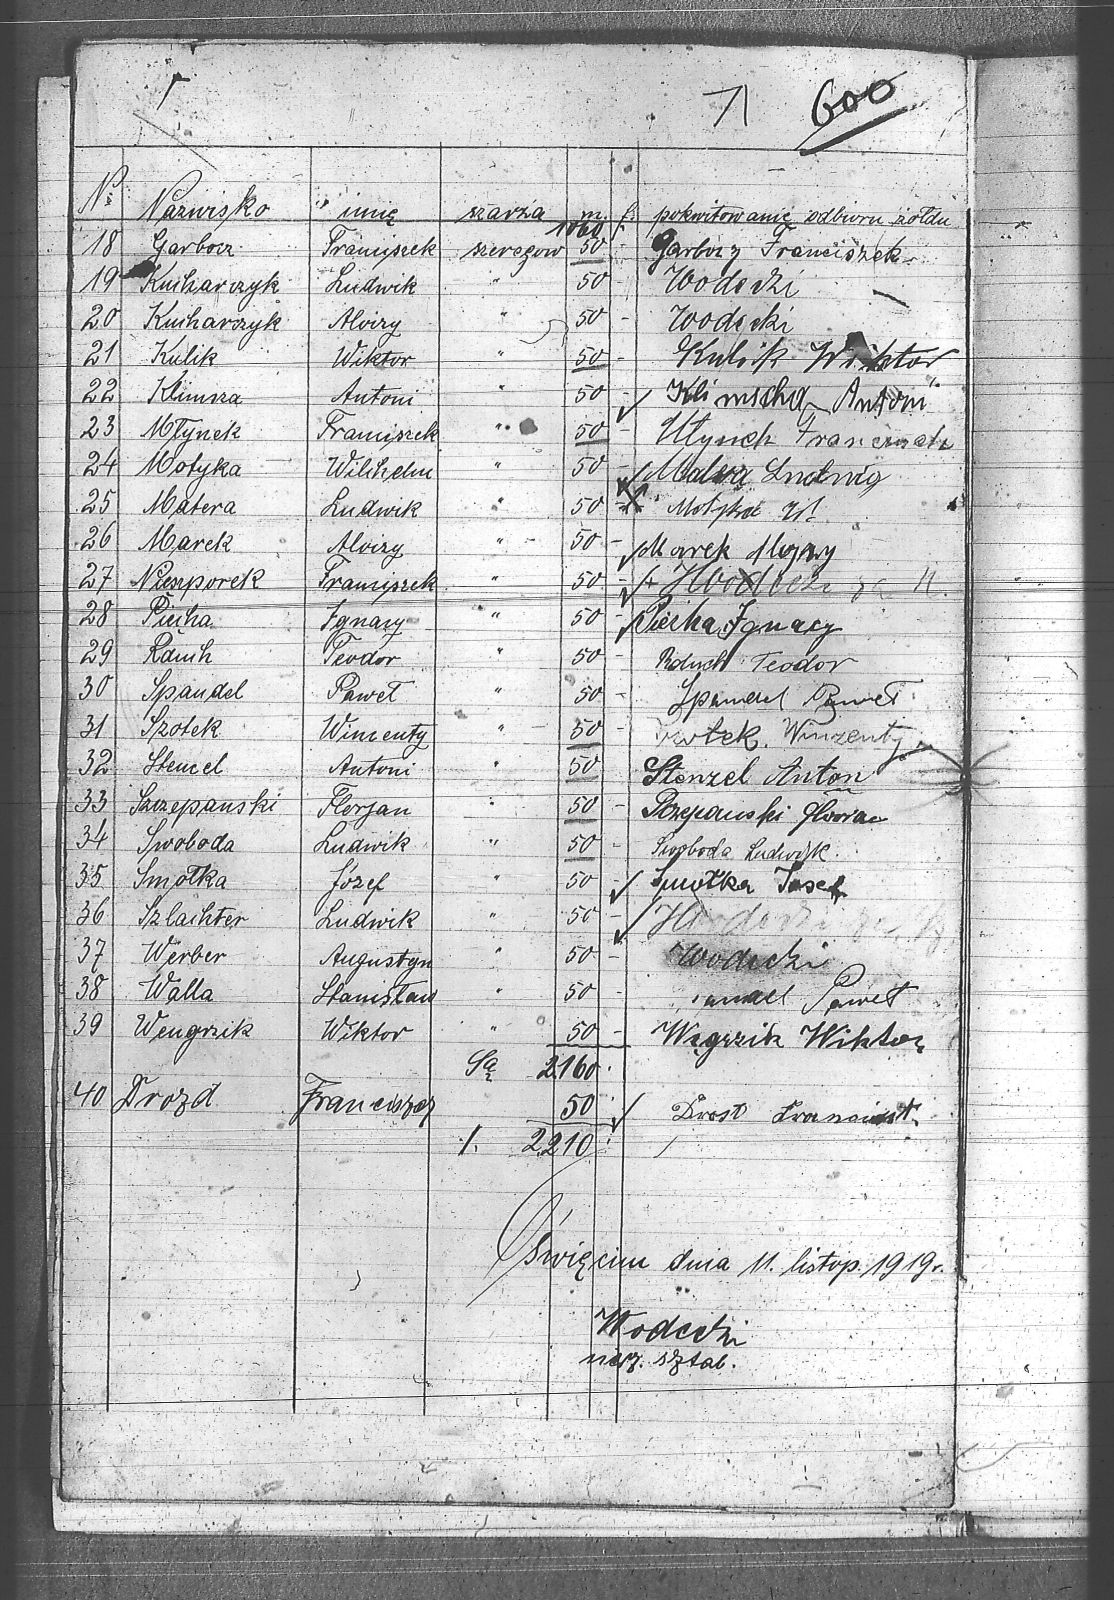 71 600
No Nazwisko imię szarża m. f. pokwitowanie odbioru żołdu
1060
18 Garbocz Franciszek szeregow 50 - Garbocz Franciszek
19 Kucharczyk Ludwik " 50 - Wodecki
20 Kucharczyk Alojzy " 50 - Wodecki
21 Kulik Wiktor " 50 - Kulik Wiktor
22 Klimsza Antoni " 50 - Klimscha Antoni
23 Młynek Franciszek " 50 -
24 Motyka Wilhelm " 50 - Ludwig
25 Matera Ludwik " 50 - Motyka
26 Marek Alojzy " 50 - Marek Alojzy
27 Nieszporek Franciszek " 50 - Wodecki za N.
28 Piecha Ignacy " 50 - Piecha Ignacy
29 Rduch Teodor " 50 - Rduch Teodor
30 Spandel Paweł " 50 - Spandel Paweł
31 Szotek Wincenty " 50 - Winzenty
32 Stencel Antoni " 50 - Stenzel Anton
33 Szczepanski Florjan " 50 -
34 Swoboda Ludwik " 50 - Swoboda Ludwik
35 Smołka Józef " 50 - Smołka Josef
36 Szlachter Ludwik " 50 - Wodecki
37 Werber Augustyn " 50 - Wodecki
38 Walla Stanisław " 50 - Paweł
39 Wengrzik Wiktor " 50 - Węgrzik Wiktor
Sa 2160.
40 Drozd Franciszez 50 Drost
/. 2210
Oświęcim dnia 11. listop. 1919r.
Wodecki
sztab.